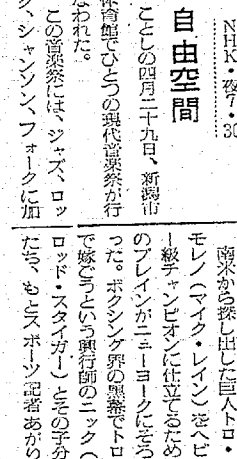 NHK・夜7・30
自由空間
ことしの四月二十九日、新潟市
体育館でひとつの現代音楽祭が行
なわれた。
この音楽祭には、ジャズ、ロッ
ク、シャンソン、フォークに加
南米から探し出した巨人トロ・
モレノ（マイク・レイン）をヘビ
ー級チャンピオンに仕立てるため
のブレインがニューヨークにそろ
った。ボクシング界の黒幕でトロ
で嫁ごうという興行師のニック（
ロッド・スタイガー）とその子分
たち、もとスポーツ記者あがり